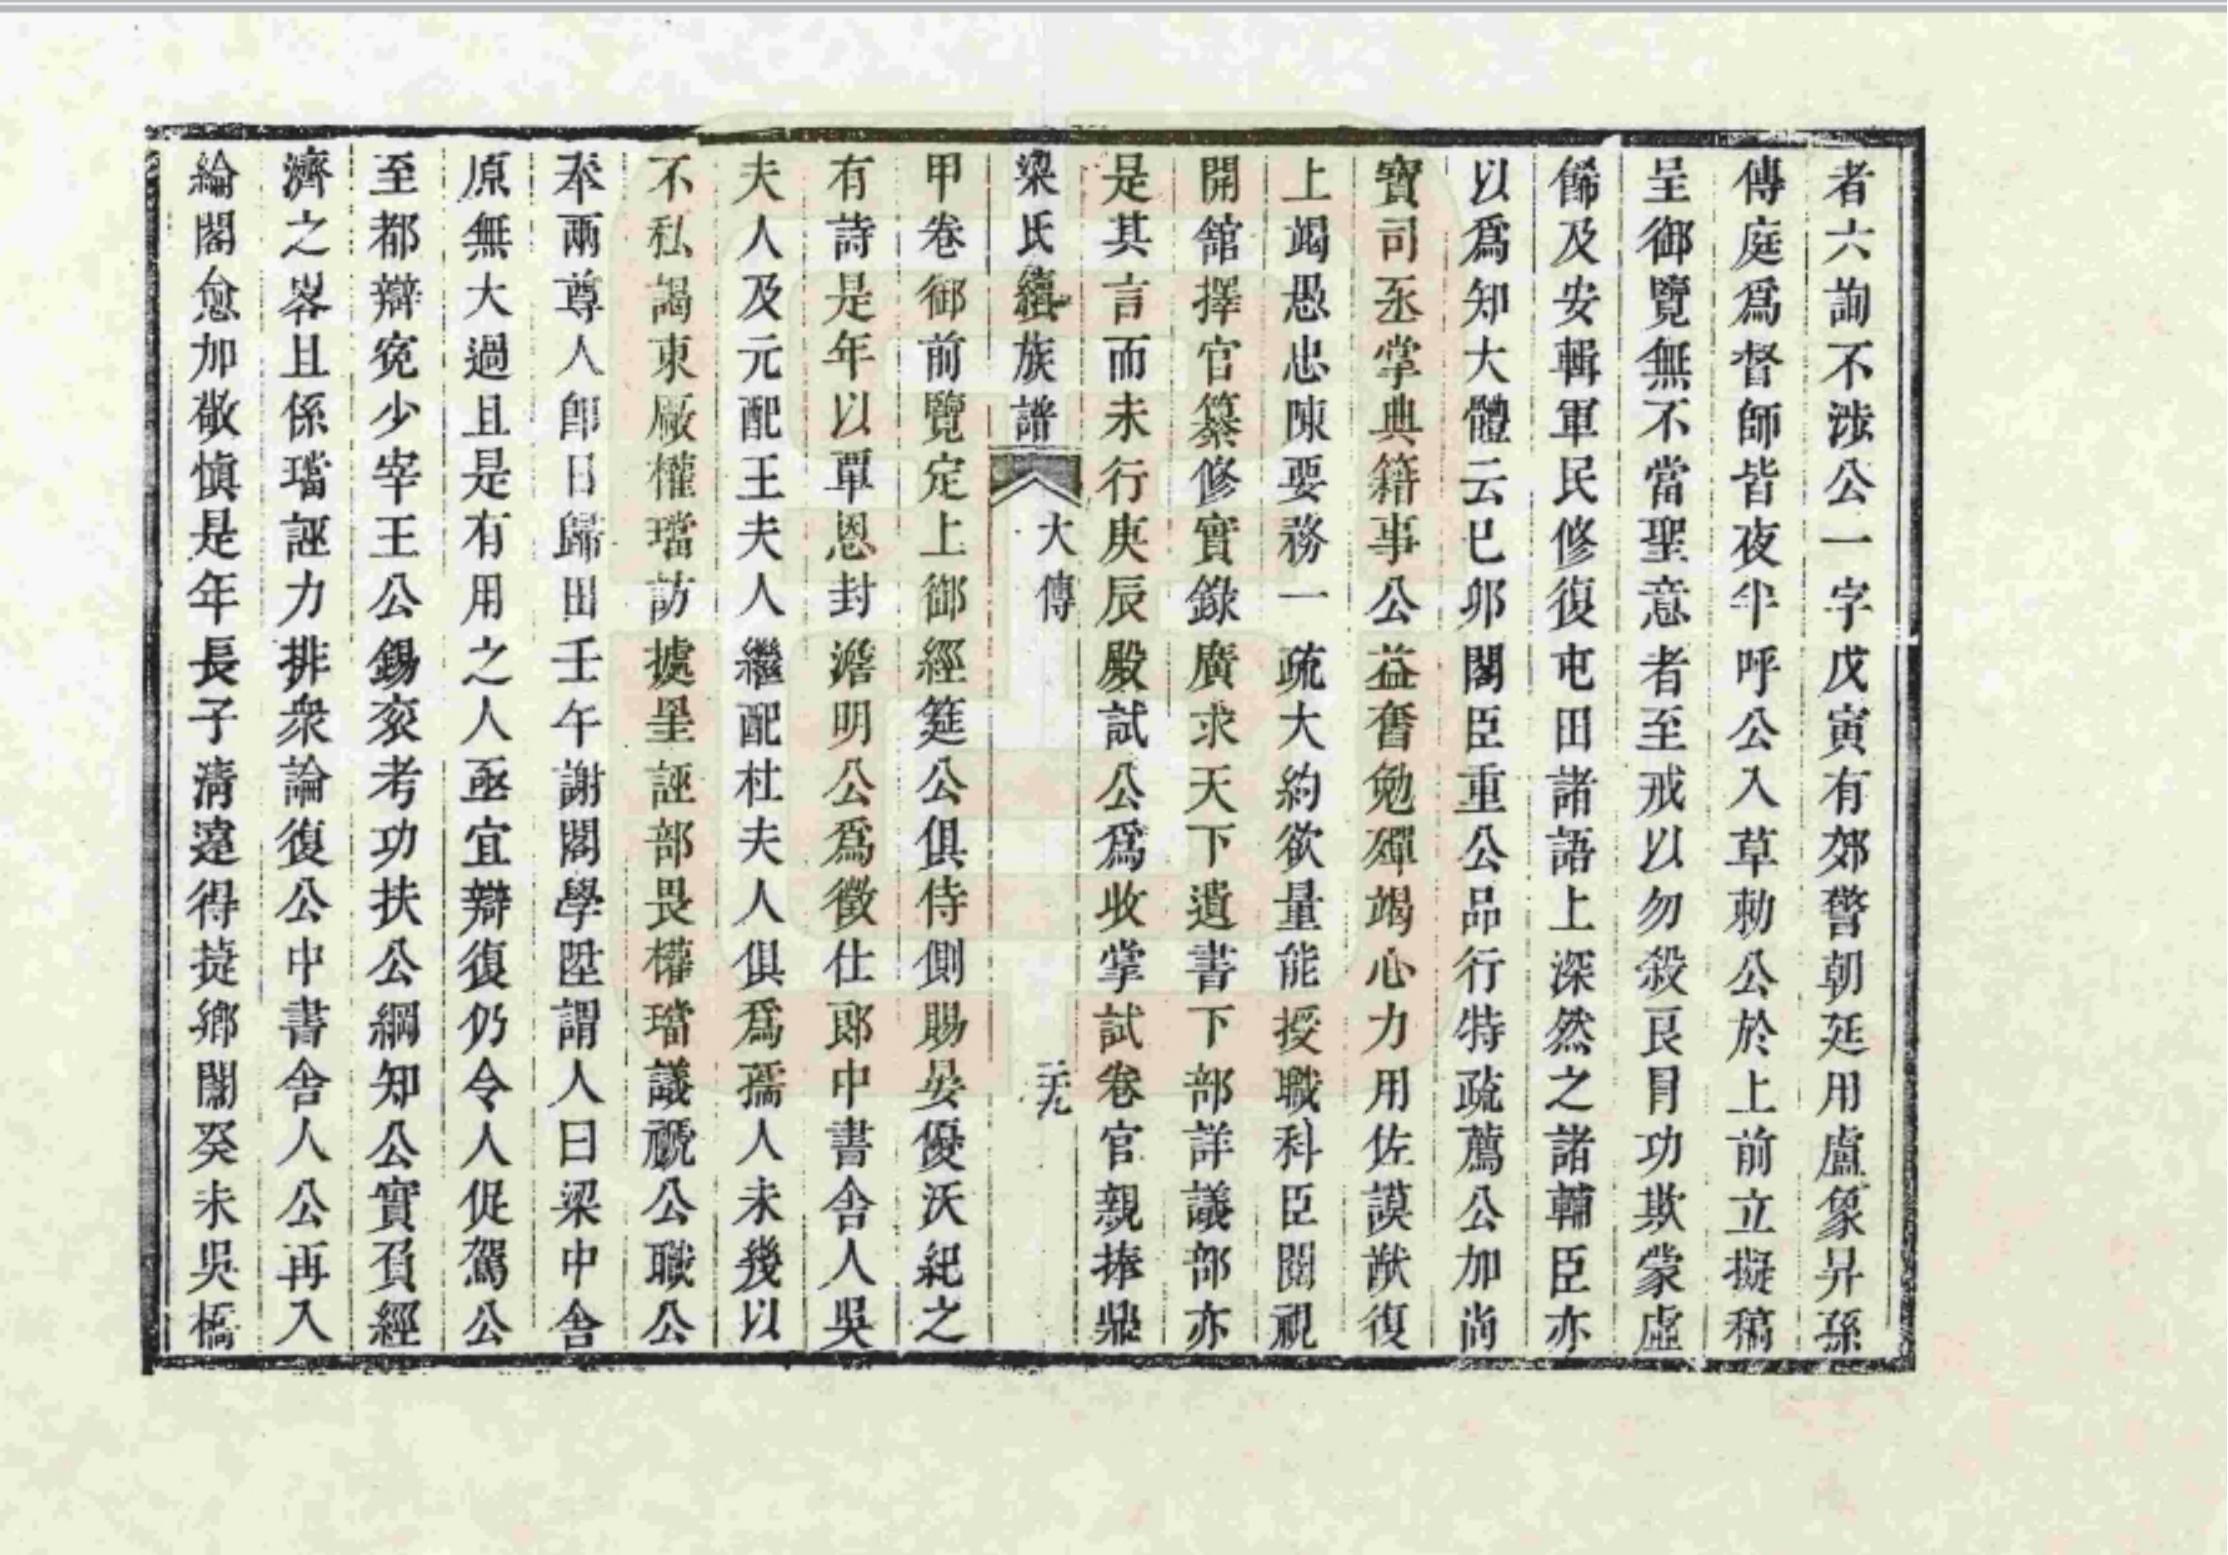 者六詢不涉公一字戊寅有郊警朝廷用盧象昇孫
傳庭爲督師皆夜半呼公入草勅公於上前立擬稿
呈御覽無不當聖意者至戒以勿殺良冐功欺蒙虛
餙及安輯軍民修復屯田諸語上深然之諸輔臣亦
以爲知大體云巳卯閣臣重公品行特疏薦公加尚
寶司丞掌典籍事公益奮勉殫竭心力用佐謨猷復
上竭愚忠陳要務一疏大約欲量能授職科臣閱視
開舘擇官纂修實錄廣求天下遺書下部詳議部亦
是其言而未行庚辰殿試公爲收掌試卷官親捧鼎
梁氏續族譜 大傳 二十九
甲卷御前覽定上御經筵公俱侍側賜晏優沃紀之
有詩是年以覃恩封澹明公爲徵仕郎中書舍人吳
夫人及元配王夫人繼配杜夫人俱爲孺人未幾以
不私謁東厰權璫訪㨿呈誣部畏權璫議褫公職公
奉兩尊人卽日歸田壬午謝閣學陞謂人曰梁中舍
原無大過且是有用之人亟宜辯復仍令人促駕公
至都辯寃少宰王公錫袞考功扶公綱知公實負經
濟之畧且係璫誣力排衆論復公中書舍人公再入
綸閣愈加敬慎是年長子清遠得捷鄉闈癸未吳橋